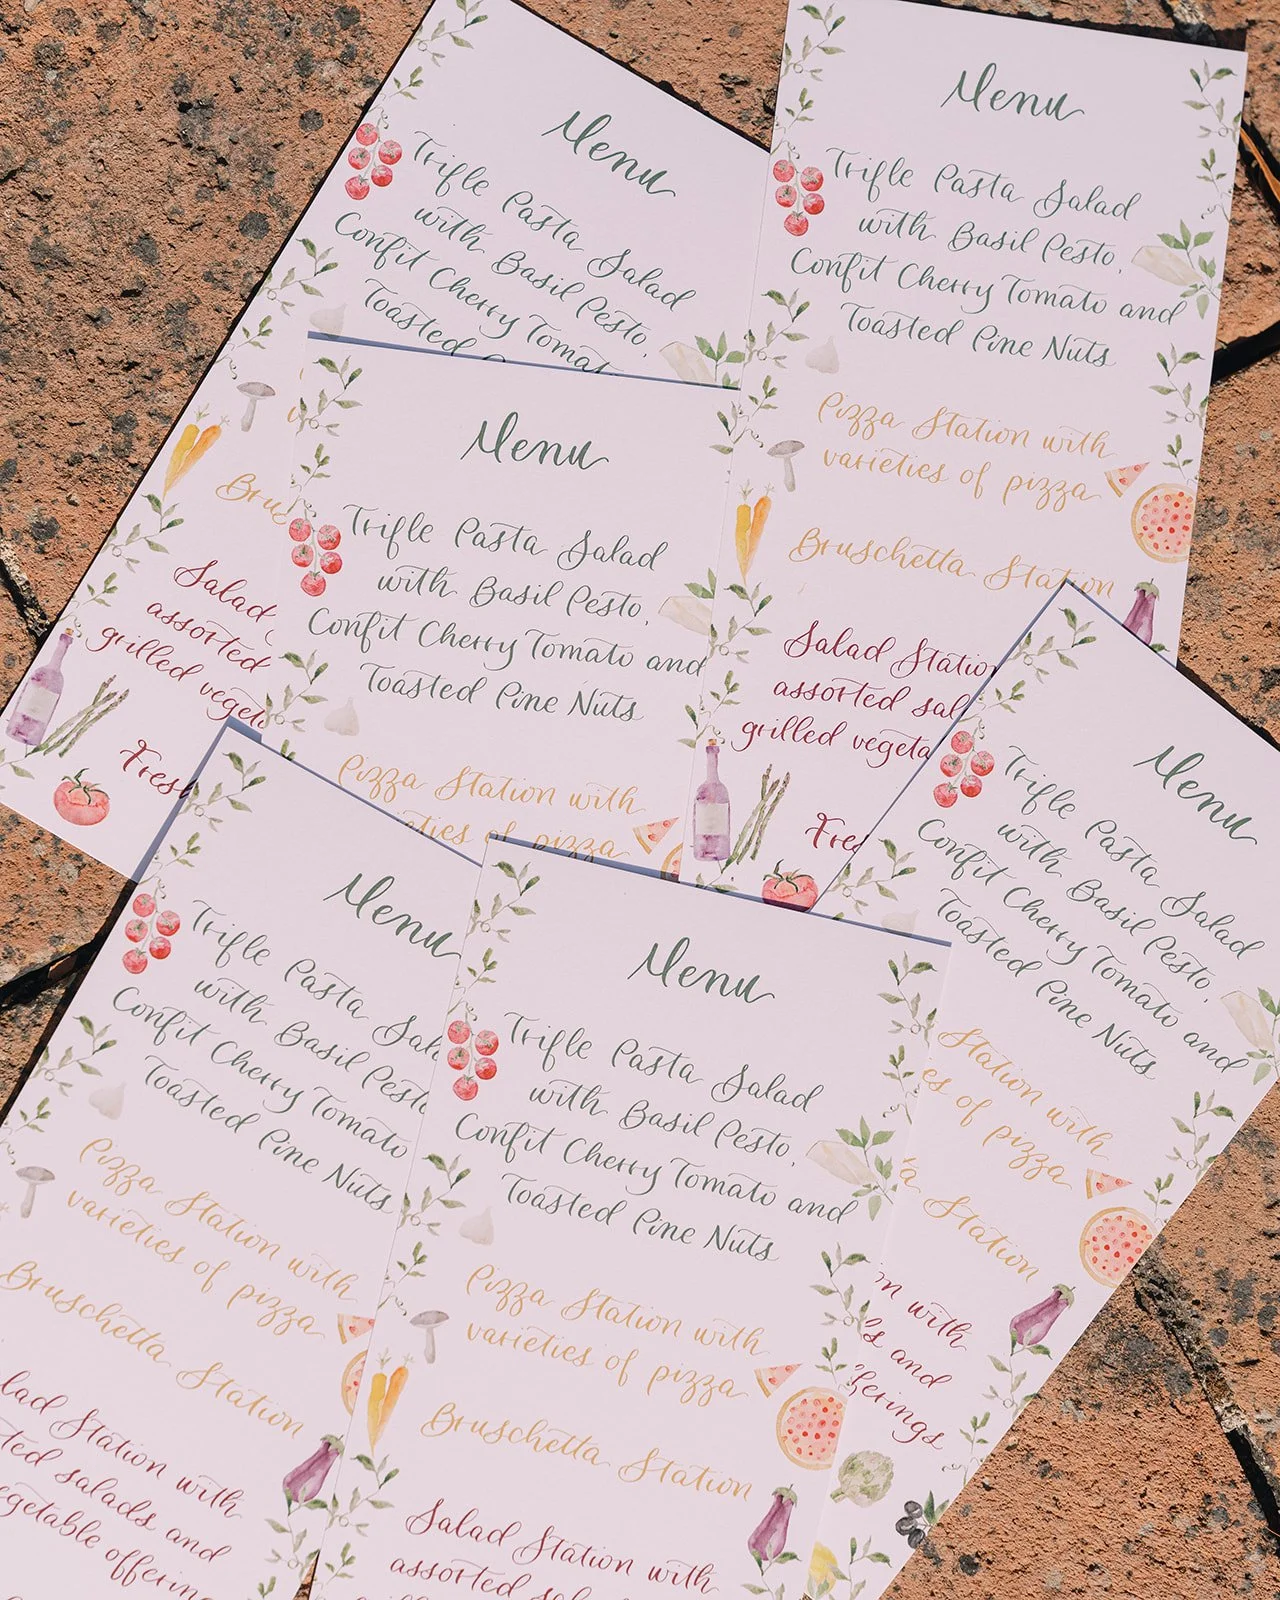 Menu
Trifle Pasta Salad
with Basil Pesto,
Confit Cherry Tomat
Toasted
Brus
Salad
assorted
grilled veget
Fres
Menu
Trifle Pasta Salad
with Basil Pesto,
Confit Cherry Tomato and
Toasted Pine Nuts
Pizza Station with
varieties of pizza
Bruschetta Station
Salad Statio
assorted sal
grilled vegeta
Fre
Menu
Trifle Pasta Salad
with Basil Pesto,
Confit Cherry Tomato and
Toasted Pine Nuts
Pizza Station with
ieties of pizza
Menu
Trifle Pasta Salad
with Basil Pesto,
Confit Cherry Tomato and
Toasted Pine Nuts
Station with
es of pizza
a Station
n with
ls and
ferings
Menu
Trifle Pasta Sal
with Basil Pest
Confit Cherry Tomato
Toasted Pine Nuts
Pizza Station with
varieties of pizza
Bruschetta Station
lad Station with
ted salads and
egetable offerin
Menu
Trifle Pasta Salad
with Basil Pesto,
Confit Cherry Tomato and
Toasted Pine Nuts
Pizza Station with
varieties of pizza
Bruschetta Station
Salad Station with
assorted sal